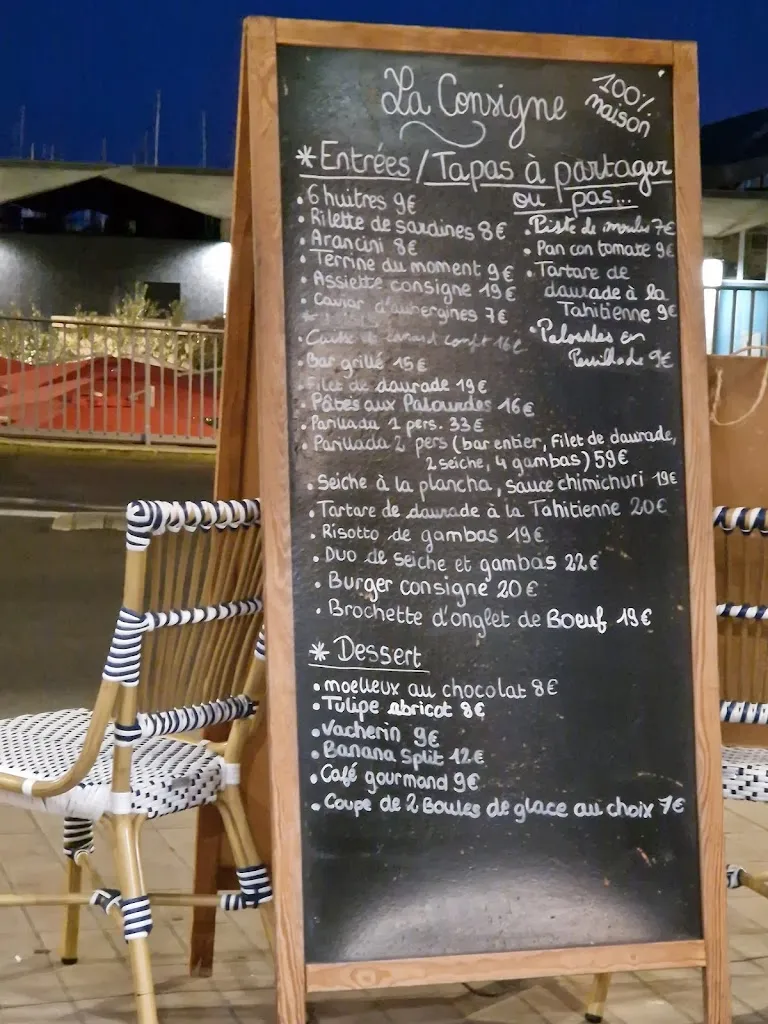 La Consigne
100% maison
*Entrées/Tapas à partager
ou pas...
• 6 huitres 9€
• Rilette de sardines 8€
• Arancini 8€
• Terrine du moment 9€
• Assiette consigne 19€
• Caviar d'aubergines 7€
• Piste de moules 7€
• Pan con tomate 9€
• Tartare de
daurade à la
Tahitienne 9€
• Palourdes en
9€
• confit 16€
• Bar grillé 15€
• Filet de daurade 19€
• Pâtes aux Palourdes 16€
• Parillada 1 pers. 33€
• Parillada 2 pers (bar entier, filet de daurade,
2 seiche, 4 gambas) 59€
• Seiche à la plancha, sauce chimichuri 19€
• Tartare de daurade à la Tahitienne 20€
• Risotto de gambas 19€
• Duo de seiche et gambas 22€
• Burger consigne 20€
• Brochette d'onglet de Boeuf 19€
* Dessert
• moelleux au chocolat 8€
• Tulipe abricot 8€
• Vacherin 9€
• Banana Split 12€
• Café gourmand 9€
• Coupe de 2 Boules de glace au choix 7€